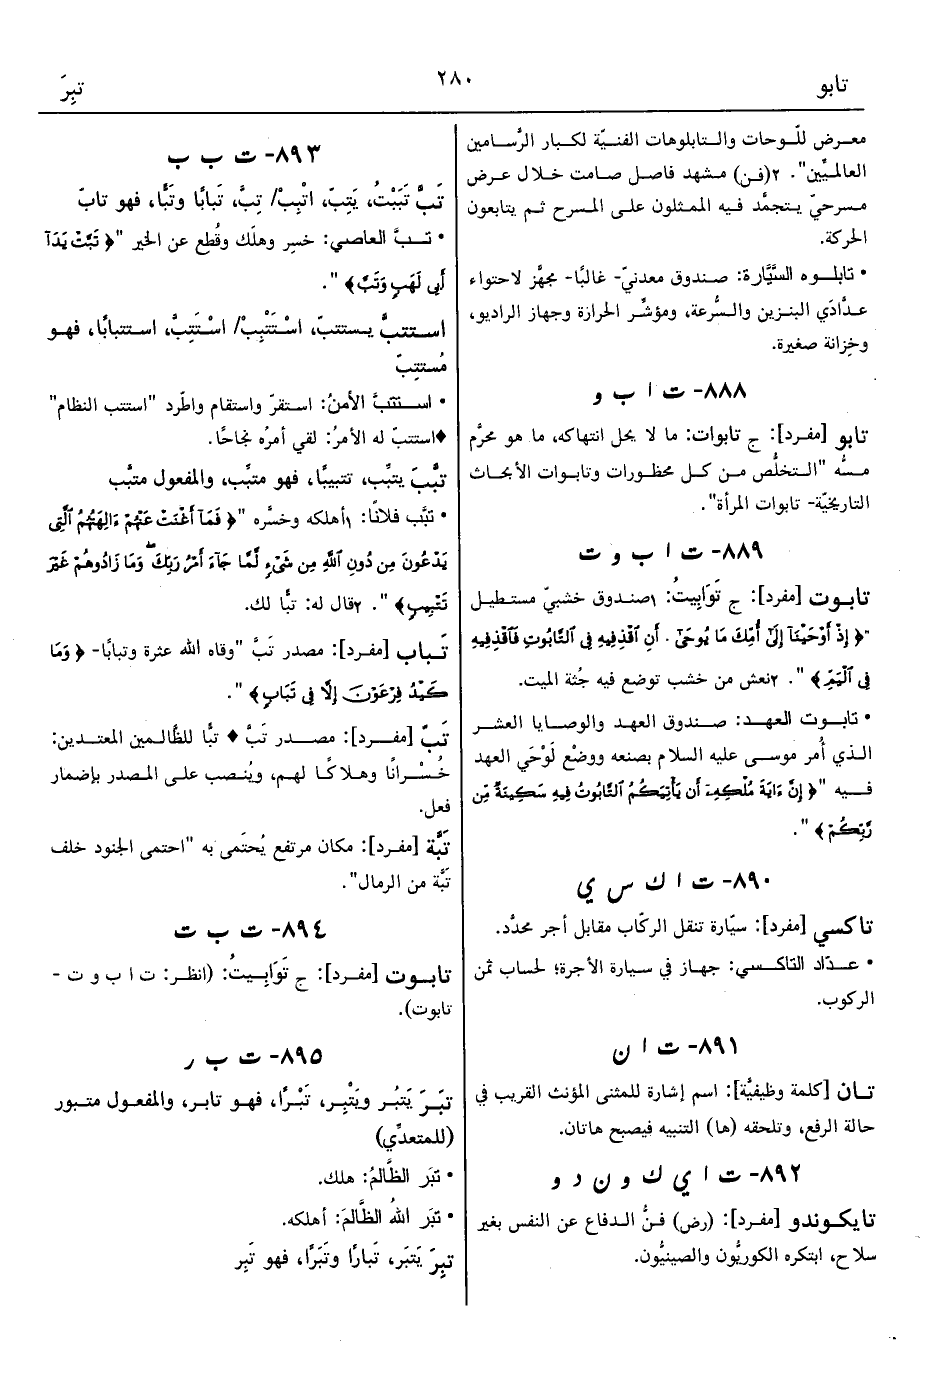 تابو
٢٨٠
تبِرَ
معرض للّوحات والتابلوهات الفنيّة لكبار الرَّسامين
العالميِّين". ٢(فن) مشهد فاصل صامت خلال عرض
مسرحيّ يتجمَّد فيه الممثلون على المسرح ثم يتابعون
الحركة.
• تابلوه السَّيَّارة: صندوق معدنيّ- غالبًا- مجهَّز لاحتواء
عدَّادَي البنزين والسُّرعة، ومؤشِّر الحرارة وجهاز الراديو،
وخِزانة صغيرة.
٨٨٨- ت ا ب و
تابو [مفرد]: ج تابوات: ما لا يحل انتهاكه، ما هو محرَّم
مسُّه "التخلُّص من كل محظورات وتابوات الأبحاث
التاريخيّة- تابوات المرأة".
٨٨٩- ت ا ب و ت
تابوت [مفرد]: ج تَوَابِيتُ: ١صندوق خشبيّ مستطيل
"﴿ إِذْ أَوْحَيْنَآ إِلَىٰٓ أُمِّكَ مَا يُوحَىٰٓ . أَنِ ٱقْذِفِيهِ فِى ٱلتَّابُوتِ فَٱقْذِفِيهِ
فِى ٱلْيَمِّ ﴾ ". ٢نعش من خشب توضع فيه جُثة الميت.
• تابوت العهد: صندوق العهد والوصايا العشر
الذي أُمر موسى عليه السلام بصنعه ووضْع لَوْحَي العهد
فيه "﴿ إِنَّ ءَايَةَ مُلْكِهِۦٓ أَن يَأْتِيَكُمُ ٱلتَّابُوتُ فِيهِ سَكِينَةٌ مِّن
رَّبِّكُمْ ﴾ ".
٨٩٠- ت ا ك س ي
تاكسي [مفرد]: سيّارة تنقل الركاب مقابل أجر محدَّد.
• عدّاد التاكسي: جهاز في سيارة الأجرة؛ لحساب ثمن
الركوب.
٨٩١- ت ا ن
تان [كلمة وظيفيَّة]: اسم إشارة للمثنى المؤنث القريب في
حالة الرفع، وتلحقه (ها) التنبيه فيصبح هاتان.
٨٩٢- ت ا ي ك و ن د و
تايكوندو [مفرد]: (رض) فنُّ الدفاع عن النفس بغير
سلاح، ابتكره الكوريُّون والصينيُّون.
٨٩٣- ت ب ب
تَبَّ تَبَبْتُ، يَتِبّ، اتْبِبْ/ تِبَّ، تَبابًا وتَبًّا، فهو تابّ
• تبَّ العاصي: خسِر وهلَك وقُطع عن الخير "﴿ تَبَّتْ يَدَآ
أَبِى لَهَبٍ وَتَبَّ ﴾ ".
استتبَّ يستتبّ، اسْتَتْبِبْ/ اسْتَتِبَّ، استتبابًا، فهو
مُستتِبّ
• استتبَّ الأمنُ: استقرّ واستقام واطَّرد "استتب النظام"
♦استتبّ له الأمرُ: لقي أمرُه نجاحًا.
تبَّبَ يتبِّب، تتبيبًا، فهو متبِّب، والمفعول متبَّب
• تبَّب فلانًا: ١أهلكه وخسَّره "﴿ فَمَآ أَغْنَتْ عَنْهُمْ ءَالِهَتُهُمُ ٱلَّتِى
يَدْعُونَ مِن دُونِ ٱللَّهِ مِن شَىْءٍ لَّمَّا جَآءَ أَمْرُ رَبِّكَ ۖ وَمَا زَادُوهُمْ غَيْرَ
تَتْبِيبٍ ﴾ ". ٢قال له: تبًّا لك.
تَباب [مفرد]: مصدر تَبَّ "وقاه الله عثرة وتبابًا- ﴿ وَمَا
كَيْدُ فِرْعَوْنَ إِلَّا فِى تَبَابٍ ﴾ ".
تَبّ [مفرد]: مصدر تَبَّ ♦ تبًّا للظَّالمين المعتدين:
خُسْرانًا وهلاكًا لهم، ويُنصب على المصدر بإضمار
فعل.
تَبَّة [مفرد]: مكان مرتفع يُحتَمى به "احتمى الجنود خلف
تَبَّة من الرمال".
٨٩٤- ت ب ت
تابوت [مفرد]: ج تَوَابِيتُ: (انظر: ت ا ب و ت -
تابوت).
٨٩٥- ت ب ر
تبَرَ يَتبُر ويَتْبِر، تَبْرًا، فهو تابر، والمفعول متبور
(للمتعدِّي)
• تبَر الظَّالمُ: هلك.
• تبَر اللهُ الظَّالمَ: أهلكه.
تبِرَ يَتبَر، تَبارًا وتَبَرًا، فهو تَبِر